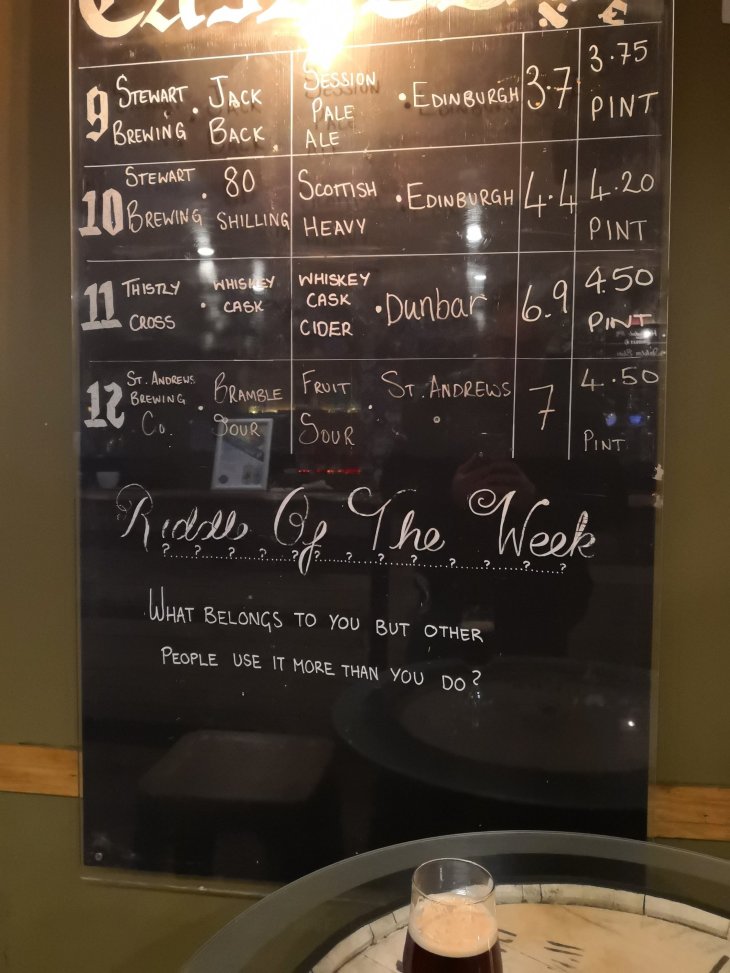 % £
9 Stewart Brewing · Jack Back Session Pale Ale · Edinburgh 3.7 3.75 Pint
10 Stewart Brewing · 80 Shilling Scottish Heavy · Edinburgh 4.4 4.20 Pint
11 Thistly Cross · Whiskey Cask Whiskey Cask Cider · Dunbar 6.9 4.50 Pint
12 St. Andrews Brewing Co. · Bramble Sour Fruit Sour · St. Andrews 7 4.50 Pint
Riddle Of The Week
?.....?.....?.....?.....?...?.....?.....?.....?.....?.....?.....?.....?
What belongs to you but other
people use it more than you do?